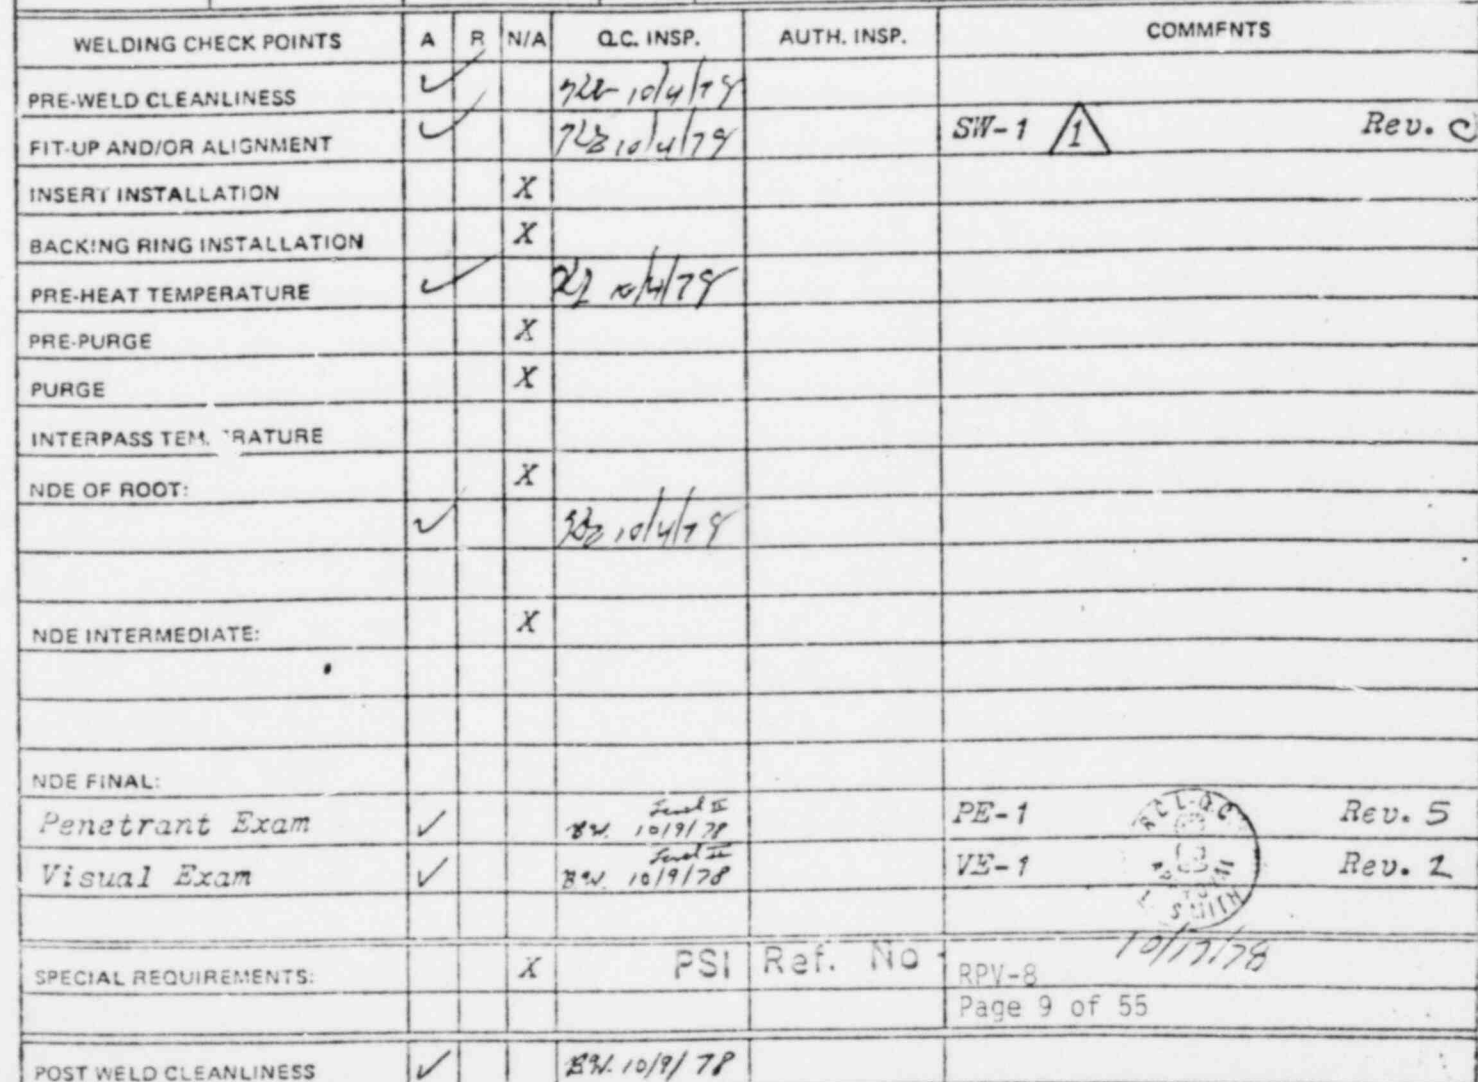 WELDING CHECK POINTS A R N/A Q.C. INSP. AUTH. INSP. COMMENTS
PRE-WELD CLEANLINESS ✓ 10/4/78
FIT-UP AND/OR ALIGNMENT ✓ 10/4/78 SW-1 1 Rev. C
INSERT INSTALLATION X
BACKING RING INSTALLATION X
PRE-HEAT TEMPERATURE ✓ 10/4/78
PRE-PURGE X
PURGE X
INTERPASS TEM. RATURE
NDE OF ROOT: X
✓ 10/4/78
NDE INTERMEDIATE: X
NDE FINAL:
Level II
Penetrant Exam ✓ B.W. 10/9/78 PE-1 Rev. 5
Level II
Visual Exam ✓ B.W. 10/9/78 VE-1 Rev. 2
SMITH
10/17/78
SPECIAL REQUIREMENTS: X PSI Ref. No. RPV-8
Page 9 of 55
POST WELD CLEANLINESS ✓ B.W. 10/9/78